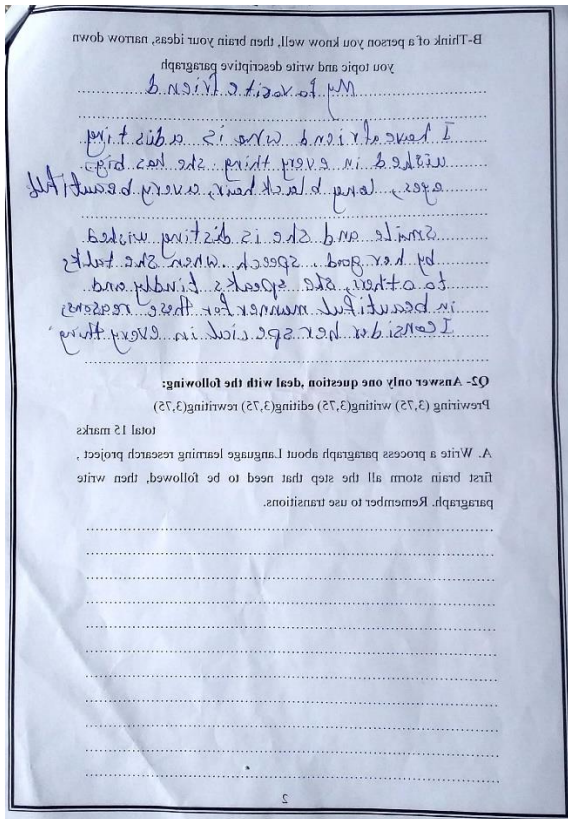 B-Think of a person you know well, then brain your ideas, narrow down
you topic and write descriptive paragraph
My favorite friend
I have afriend who is adisting
wished in every thing. she has big,
eyes, long black hair, avery beautiful
smile and she is disting wished
by her good. speech, when she talks
to other, she speaks kindly and
in beautiful manner for these reasons,
I consider her special in every thing
Q2- Answer only one question ,deal with the following:
Prewiring (3,75) writing(3,75) editing(3,75) rewriting(3,75)
total 15 marks
A. Write a process paragraph about Language learning research project ,
first brain storm all the step that need to be followed, then write
paragraph. Remember to use transitions.
2